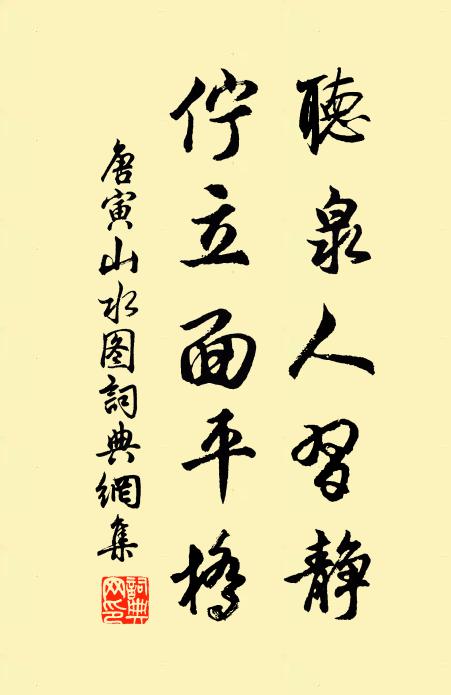 聽泉人習静
佇立面平橋
唐寅山水图詞典網集
詞典網印